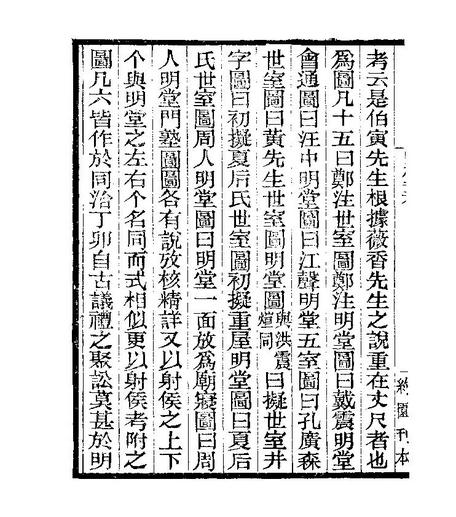 考云是伯寅先生根據薇香先生之說重在丈尺者也
爲圖凡十五曰鄭注世室圖鄭注明堂圖曰戴震明堂
會通圖曰汪中明堂圖曰江聲明堂五室圖曰孔廣森
世室圖曰黃先生世室圖明堂圖與洪震煊同曰擬世室井
字圖曰初擬夏后氏世室圖初擬重屋明堂圖曰夏后
氏世室圖周人明堂圖曰明堂一面放爲廟寢圖曰周
人明堂門塾圖圖各有說攷核精詳又以射侯之上下
个與明堂之左右个名同而式相似更以射侯考附之
圖凡六皆作於同治丁卯自古議禮之聚訟莫甚於明
約園刊本